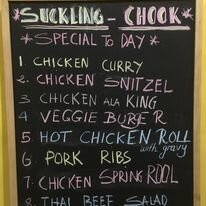 *SUCKLING - CHOOK*
*SPECIAL To DAY*
1 CHICKEN CURRY
2. CHICKEN SNITZEL
3 CHICKEN ALA KING
4 VEGGIE BURGER
5 HOT CHICKEN ROLL
with gravy
6 PORK RIBS
7. CHICKEN SPRING ROOL
8 THAI BEEF SALAD